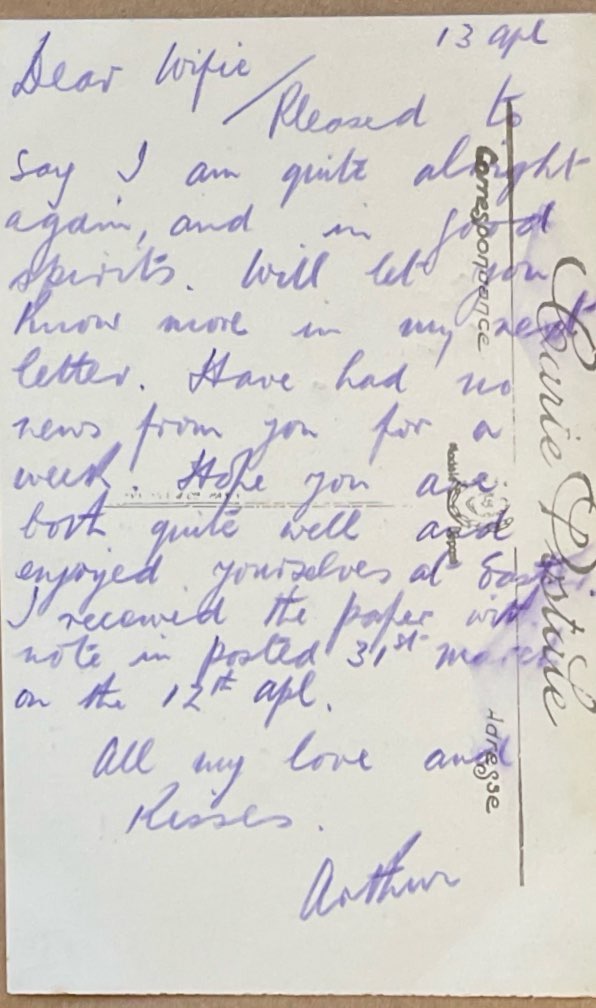 13 apl
Dear Wifie /
Pleased to
say I am quite alright
again, and in good
spirits. Will let you
know more in my next
letter. Have had no
news from you for a
week. Hope you are
both quite well and
enjoyed yourselves at
I received the paper with
note in posted 31st march
on the 12th apl.
All my love and
Kisses.
Arthur
Carte Postale
Correspondance
Adresse